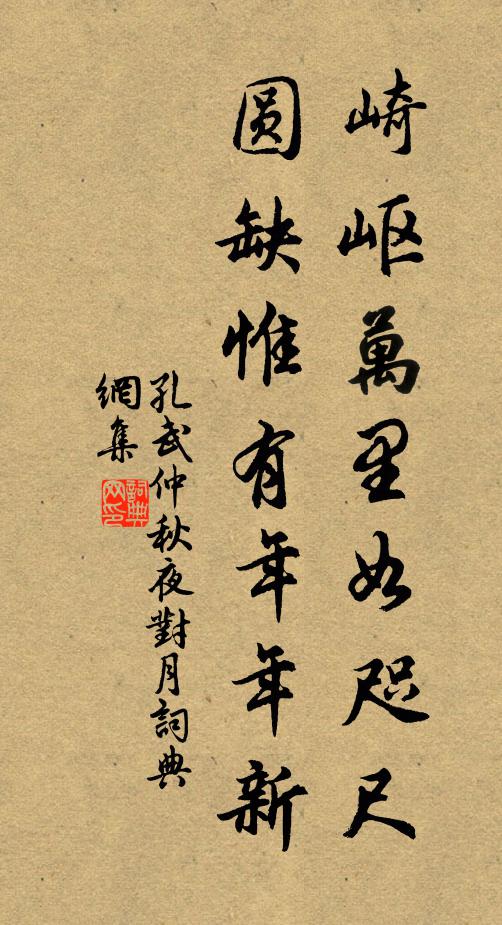 崎岖萬里如咫尺
圆缺惟有年年新
孔武仲秋夜對月詞典
網集
詞典
网印